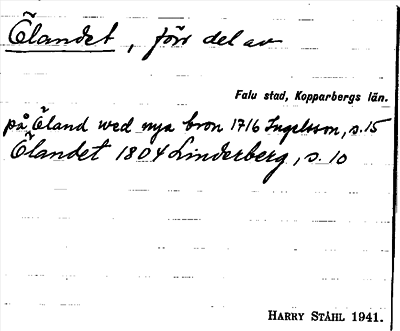 Ölandet, förr del av
Falu stad, Kopparbergs län.
på Öland wed nya bron 1716 Ingelsson, s. 15
Ölandet 1804 Linderberg, s. 10
HARRY STÅHL 1941.